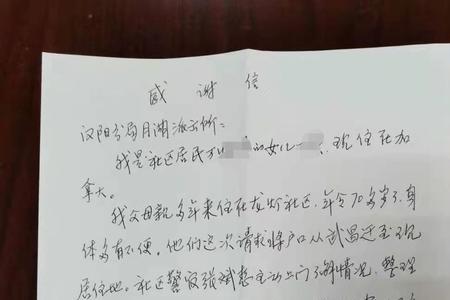 感 谢 信
汉阳分局月湖派出所:
我是社区居民 的女儿 现住在加
拿大。
我父母亲多年来住在龙灯社区,年令70多岁了,身
体多有不便。他们这次请求将户口从武昌迁至现
居住地。社区警官张斌 主动上门了解情况,整理